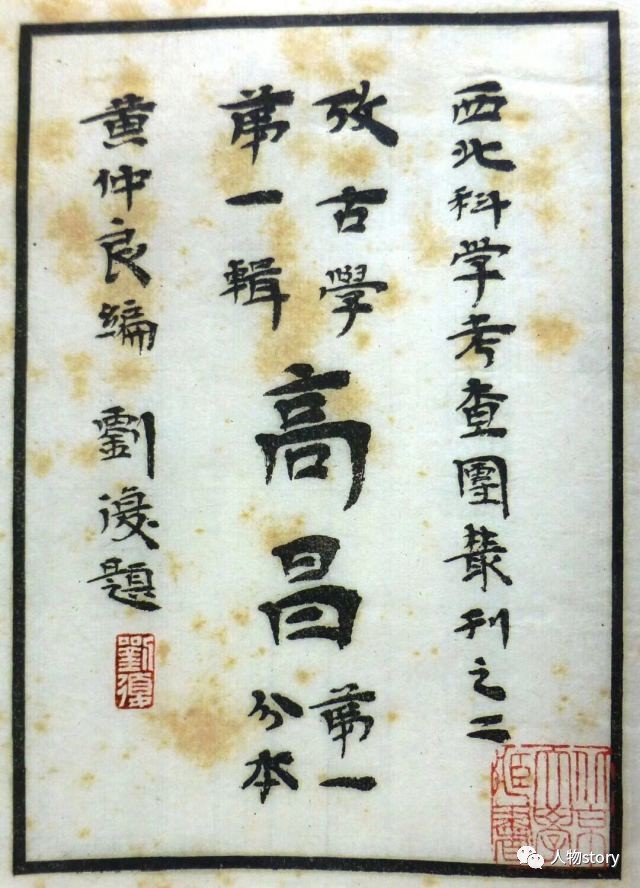 西北科学考查團叢刊之二
攷古學
第一輯
高昌
第一
分本
黄仲良編 劉復題
劉復
北京
大學
藏書
人物story